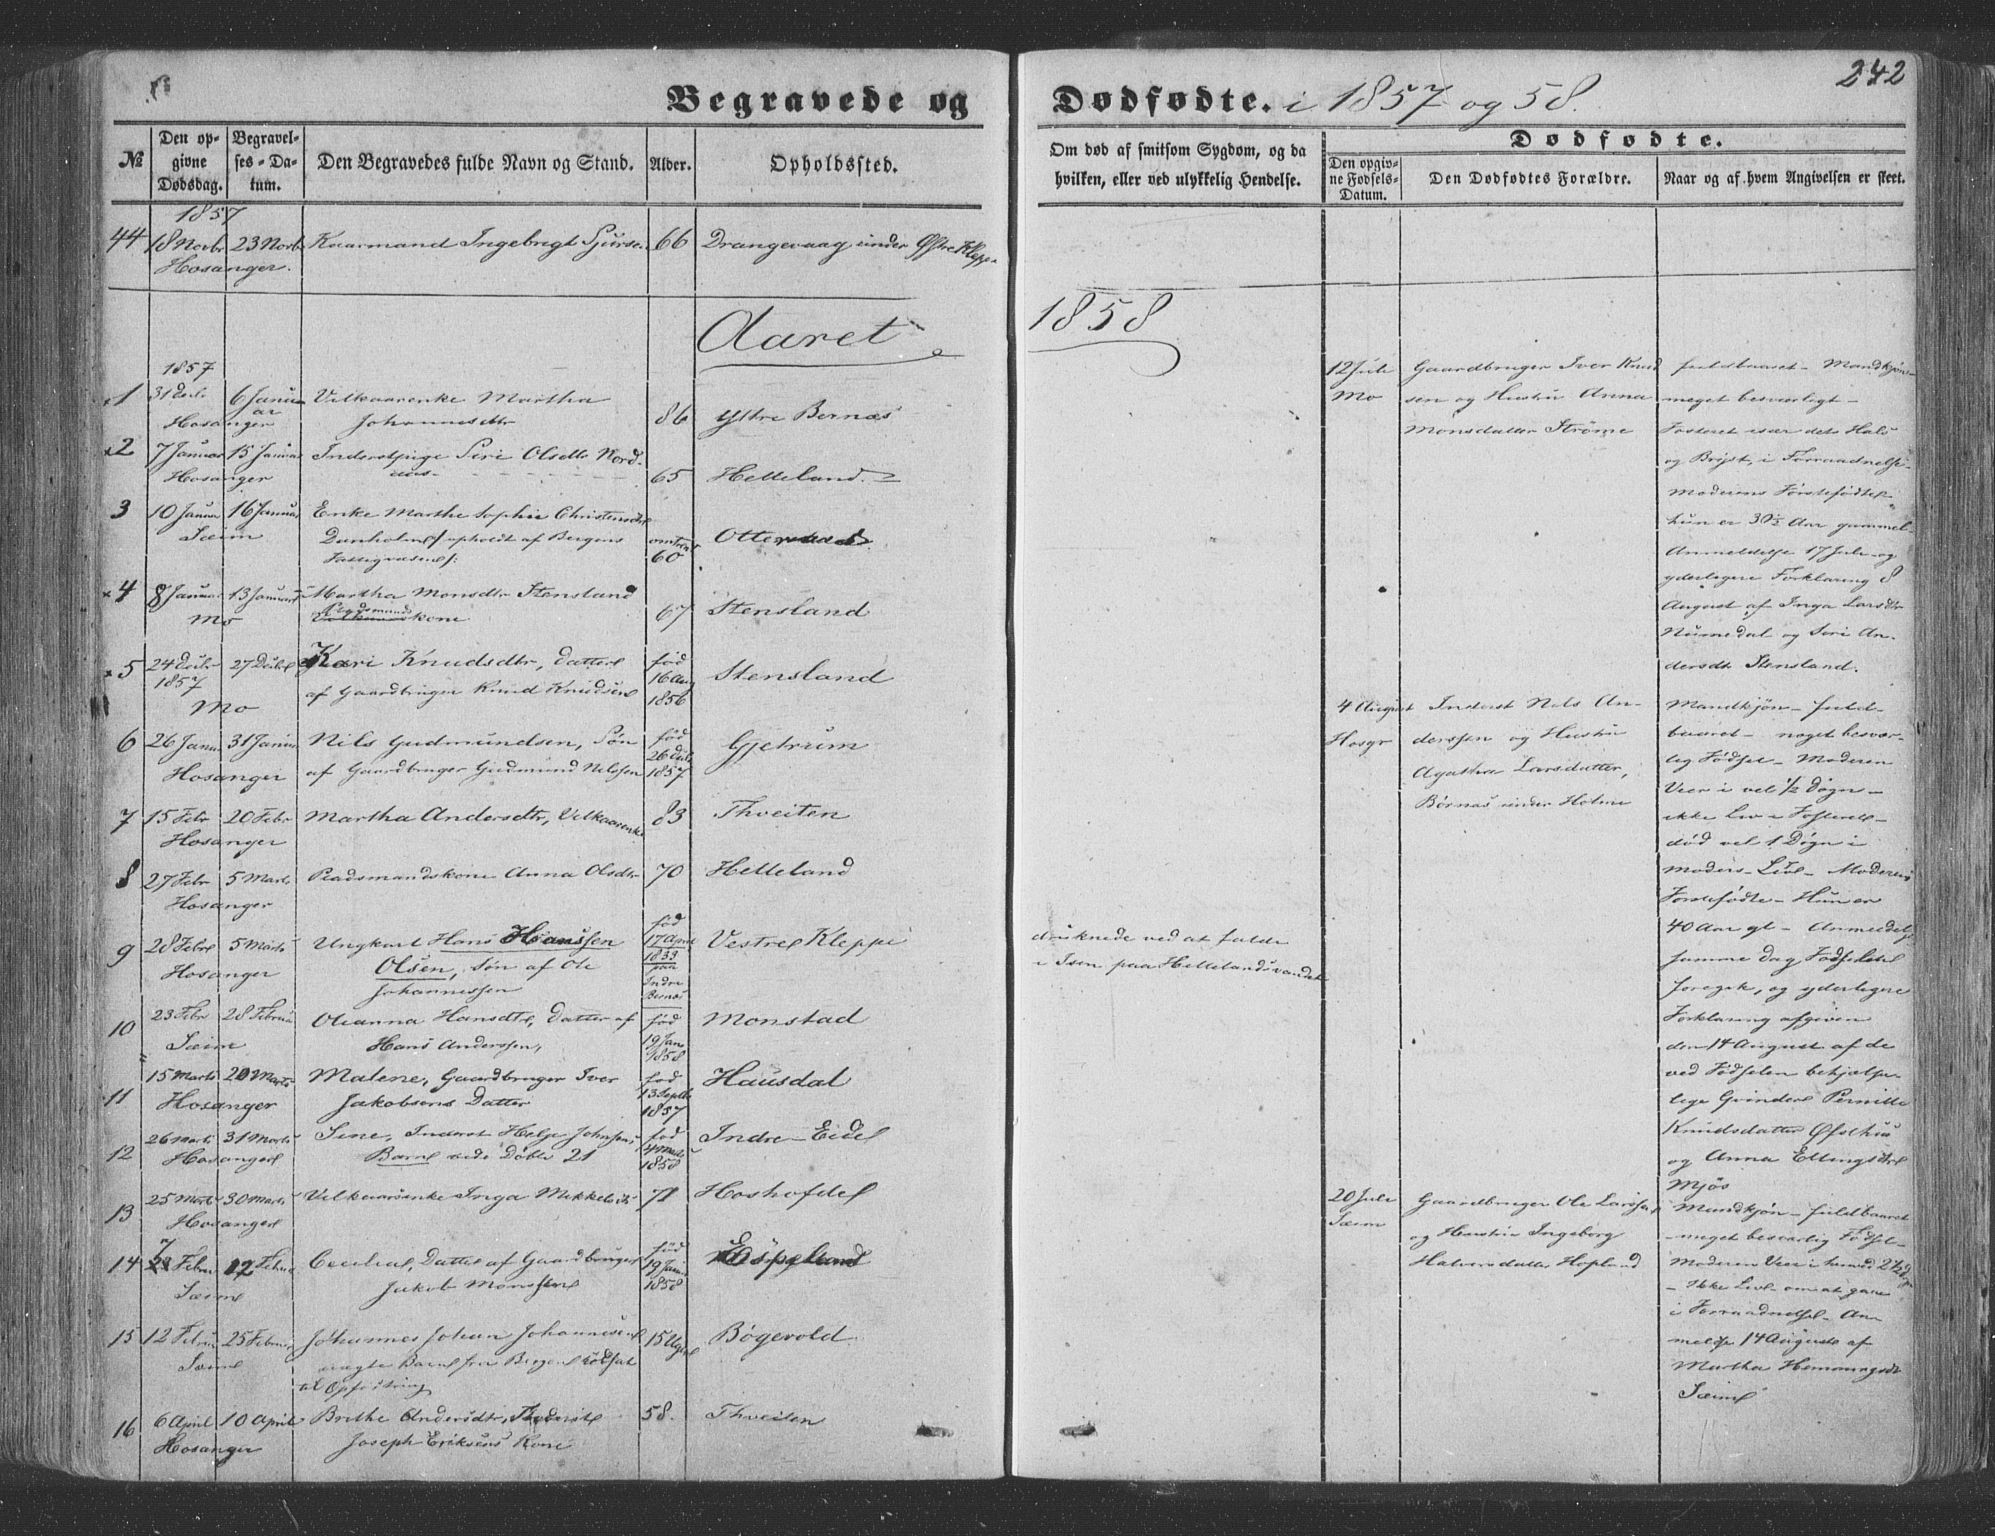 242
Begravede og Dødfødte. i 1857 og 58.
№
Den opgivne Dødsdag.
Begravelses-Datum.
Den Begravedes fulde Navn og Stand.
Alder.
Opholdssted.
Om død af smitsom Sygdom, og da hvilken, eller ved ulykkelig Hendelse.
Dødfødte.
Den opgivne Fødsels-Datum.
Den Dødfødtes Forældre.
Naar og af hvem Angivelsen er skeet.
1857
44 18 Novbr 23 Novb Ingebrigt Sjursen 66 Drangevaag under Østre Kleppe
Hosanger.
Aaret 1858
1857
1 31 Decbr 6 Januar Vilkaarenke Martha
Hosanger Johannesdtr 86 Ystre Bernæs
2 7 Januar 15 Januar Inderstpige Siri Olsdtr Nord-
Hosanger aas 65 Helleland
3 10 Januar 16 Januar Enke Marthe Sophie Christensdtr
Sæim Danholm opholdt af Bergens omtrent
Fattigvæsen 60
4 8 Januar 13 Januar Martha Monsdtr Stensland
Mo kone 67 Stensland
5 24 Decbr 27 Decbr Kari Knudsdtr, Datter født
1857 af Gaardbruger Knud Knudsen 16 Aug Stensland
Mo 1856
6 26 Janu 31 Januar Nils Gudmundsen, Søn født Gjetrum
Hosanger af Gaardbruger Gudmund Nilssen 26 Decb 1857
7 15 Febr 20 Febr Martha Andersdtr, Vilkaarenke 83 Thveiten
Hosanger
8 27 Febr 5 Marts Pladsmandskone Anna Olsdtr 70 Helleland
Hosanger
9 28 Febr 5 Marts Ungkarl Hans Hanssen født Vestre Kleppe druknede ved at falde
Hosanger Olsen, Søn af Ole 17 April 1833 i Isen paa Hellelandsvandet
Johannessen paa Indre Bernæs
10 23 Febr 28 Februar Oleanna Hansdtr, Datter af født Monstad
Sæim Hans Anderssen, 19 Jan 1858
11 15 Marts 20 Marts Malene, Gaardbruger Iver født Hausdal
Hosanger Jakobsens Datter 13 Septb 1857
12 26 Marts 31 Marts Sine, Inderst Helje Johnsens født Indre Eide
Hosanger Barn vide Døbte 21 14 Marts 1858
13 25 Marts 30 Marts Vilkaarsenke Inga Mikkelsdtr 71 Hoshofde
Hosanger
14 7 Febru 12 Februar Cecilia, Datter af Gaardbruger født Espeland
Sæim Jakob Monssen 19 Janu 1858
15 12 Februar 25 Februar Johannes Johan Johannesen 15 Uger Bøgevold
Sæim uægte Barn fra Bergen udsat
til Opfostring
16 6 April 10 April Brithe Andersdtr, 58. Thveiten
Hosanger Joseph Eriksens Kone
12 Juli
Mo
Gaardbruger Iver Knud
sen og Hustru Anna
Monsdatter Strømme
fuldbaaret - Mandkjøn-
meget besværligt -
Fosteret især det Hals
og Bryst i Forraadnelse
Moderens Førstefødte
hun er 30½ Aar gammel
Anmeldelse 17 Juli og
yderligere Forklaring 8
August af Inga Larsdtr
Numedal og Siri An-
dersdt Stensland.
4 August
Hosgr
Inderst Nils An-
derssen og Hustru
Agatha Larsdatter,
Børnæs under Holme
Mandkjøn - fuld-
baaret - noget besvær-
lig Fødsel - Moderen
Veer i vel 1/2 Døgn -
ikke Liv i Fosteret -
død vel 1 Døgn i
Moders Liv - Moderens
Førstefødte - Hun er
40 Aar gl - Anmeldt
samme dag Fødselen
foregik, og yderligere
Forklaring afgiven
den 14 August af de
ved Fødselen behjælpe-
lige Qvinder Pernille
Knudsdatter Østhus
og Anna Ellingsdtr
Mjøs
20 Juli
Sæim
Gaardbruger Ole Larssen
og Hustru Ingeborg
Halvorsdatter Hopland
Mandkjøn - fuldbaaret
- meget besværlig Fødsel -
Moderen Veer i henved 2½ Døgn
- Ikke Liv - om at gaae
i Forraadnelse - An
meldt 14 Auguste af
Martha Hemmingsdt
Sæim